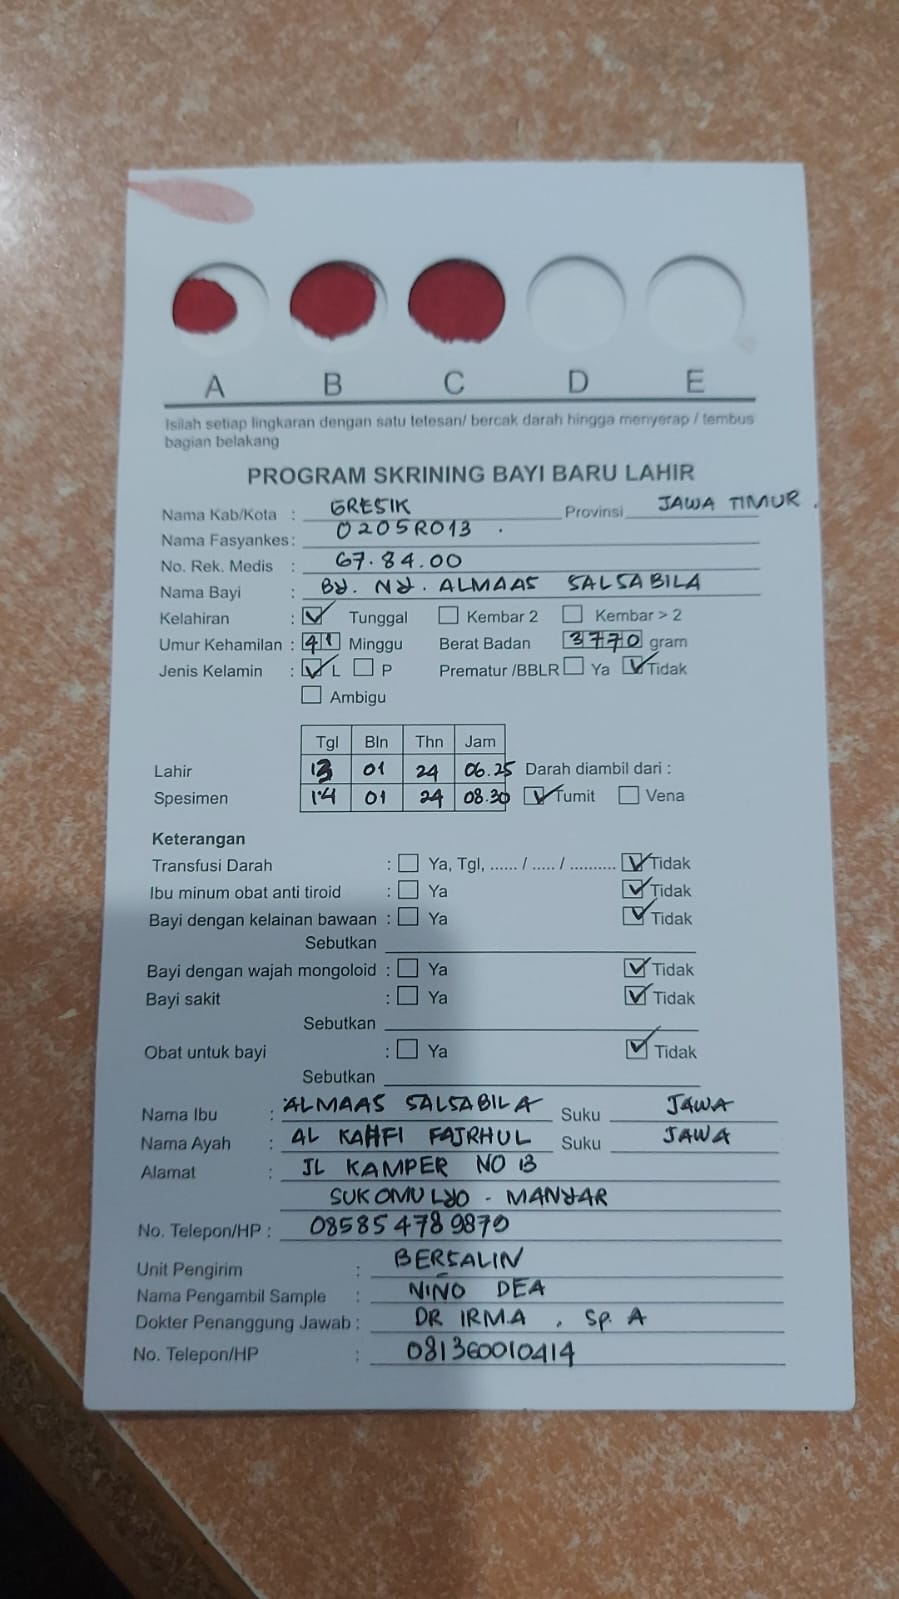 A B C D E
Isilah setiap lingkaran dengan satu tetesan/ bercak darah hingga menyerap / tembus
bagian belakang
PROGRAM SKRINING BAYI BARU LAHIR
Nama Kab/Kota : GRESIK Provinsi JAWA TIMUR .
Nama Fasyankes : 0205R013 .
No. Rek. Medis : 67.84.00
Nama Bayi : BY. NY. ALMAAS SALSABILA
Kelahiran : Tunggal Kembar 2 Kembar > 2
Umur Kehamilan : 41 Minggu Berat Badan 3770 gram
Jenis Kelamin : L P Prematur /BBLR Ya Tidak
Ambigu
Tgl Bln Thn Jam
Lahir 13 01 24 06.25 Darah diambil dari :
Spesimen 14 01 24 08.30 Tumit Vena
Keterangan
Transfusi Darah : Ya, Tgl, ...... / ..... / .......... Tidak
Ibu minum obat anti tiroid : Ya Tidak
Bayi dengan kelainan bawaan : Ya Tidak
Sebutkan
Bayi dengan wajah mongoloid : Ya Tidak
Bayi sakit : Ya Tidak
Sebutkan
Obat untuk bayi : Ya Tidak
Sebutkan
Nama Ibu : ALMAAS SALSABILA Suku JAWA
Nama Ayah : AL KAHFI FAJRHUL Suku JAWA
Alamat : JL KAMPER NO 13
SUKOMULYO - MANYAR
No. Telepon/HP : 085854789870
Unit Pengirim : BERSALIN
Nama Pengambil Sample : NINO DEA
Dokter Penanggung Jawab : DR IRMA , Sp. A
No. Telepon/HP : 081360010414